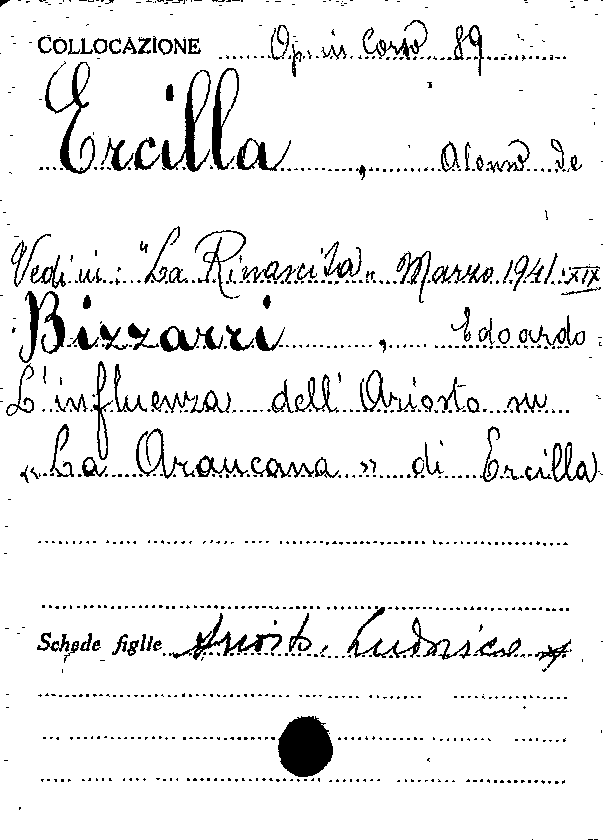 COLLOCAZIONE Op. in Corso 89
Ercilla, Alonso de
Vedi in: "La Rinascita" Marzo 1941. XIX
Bizzarri, Edoardo
L'influenza dell'Ariosto su
«La Araucana» di Ercilla
Schede figlie Ariosto, Ludovico